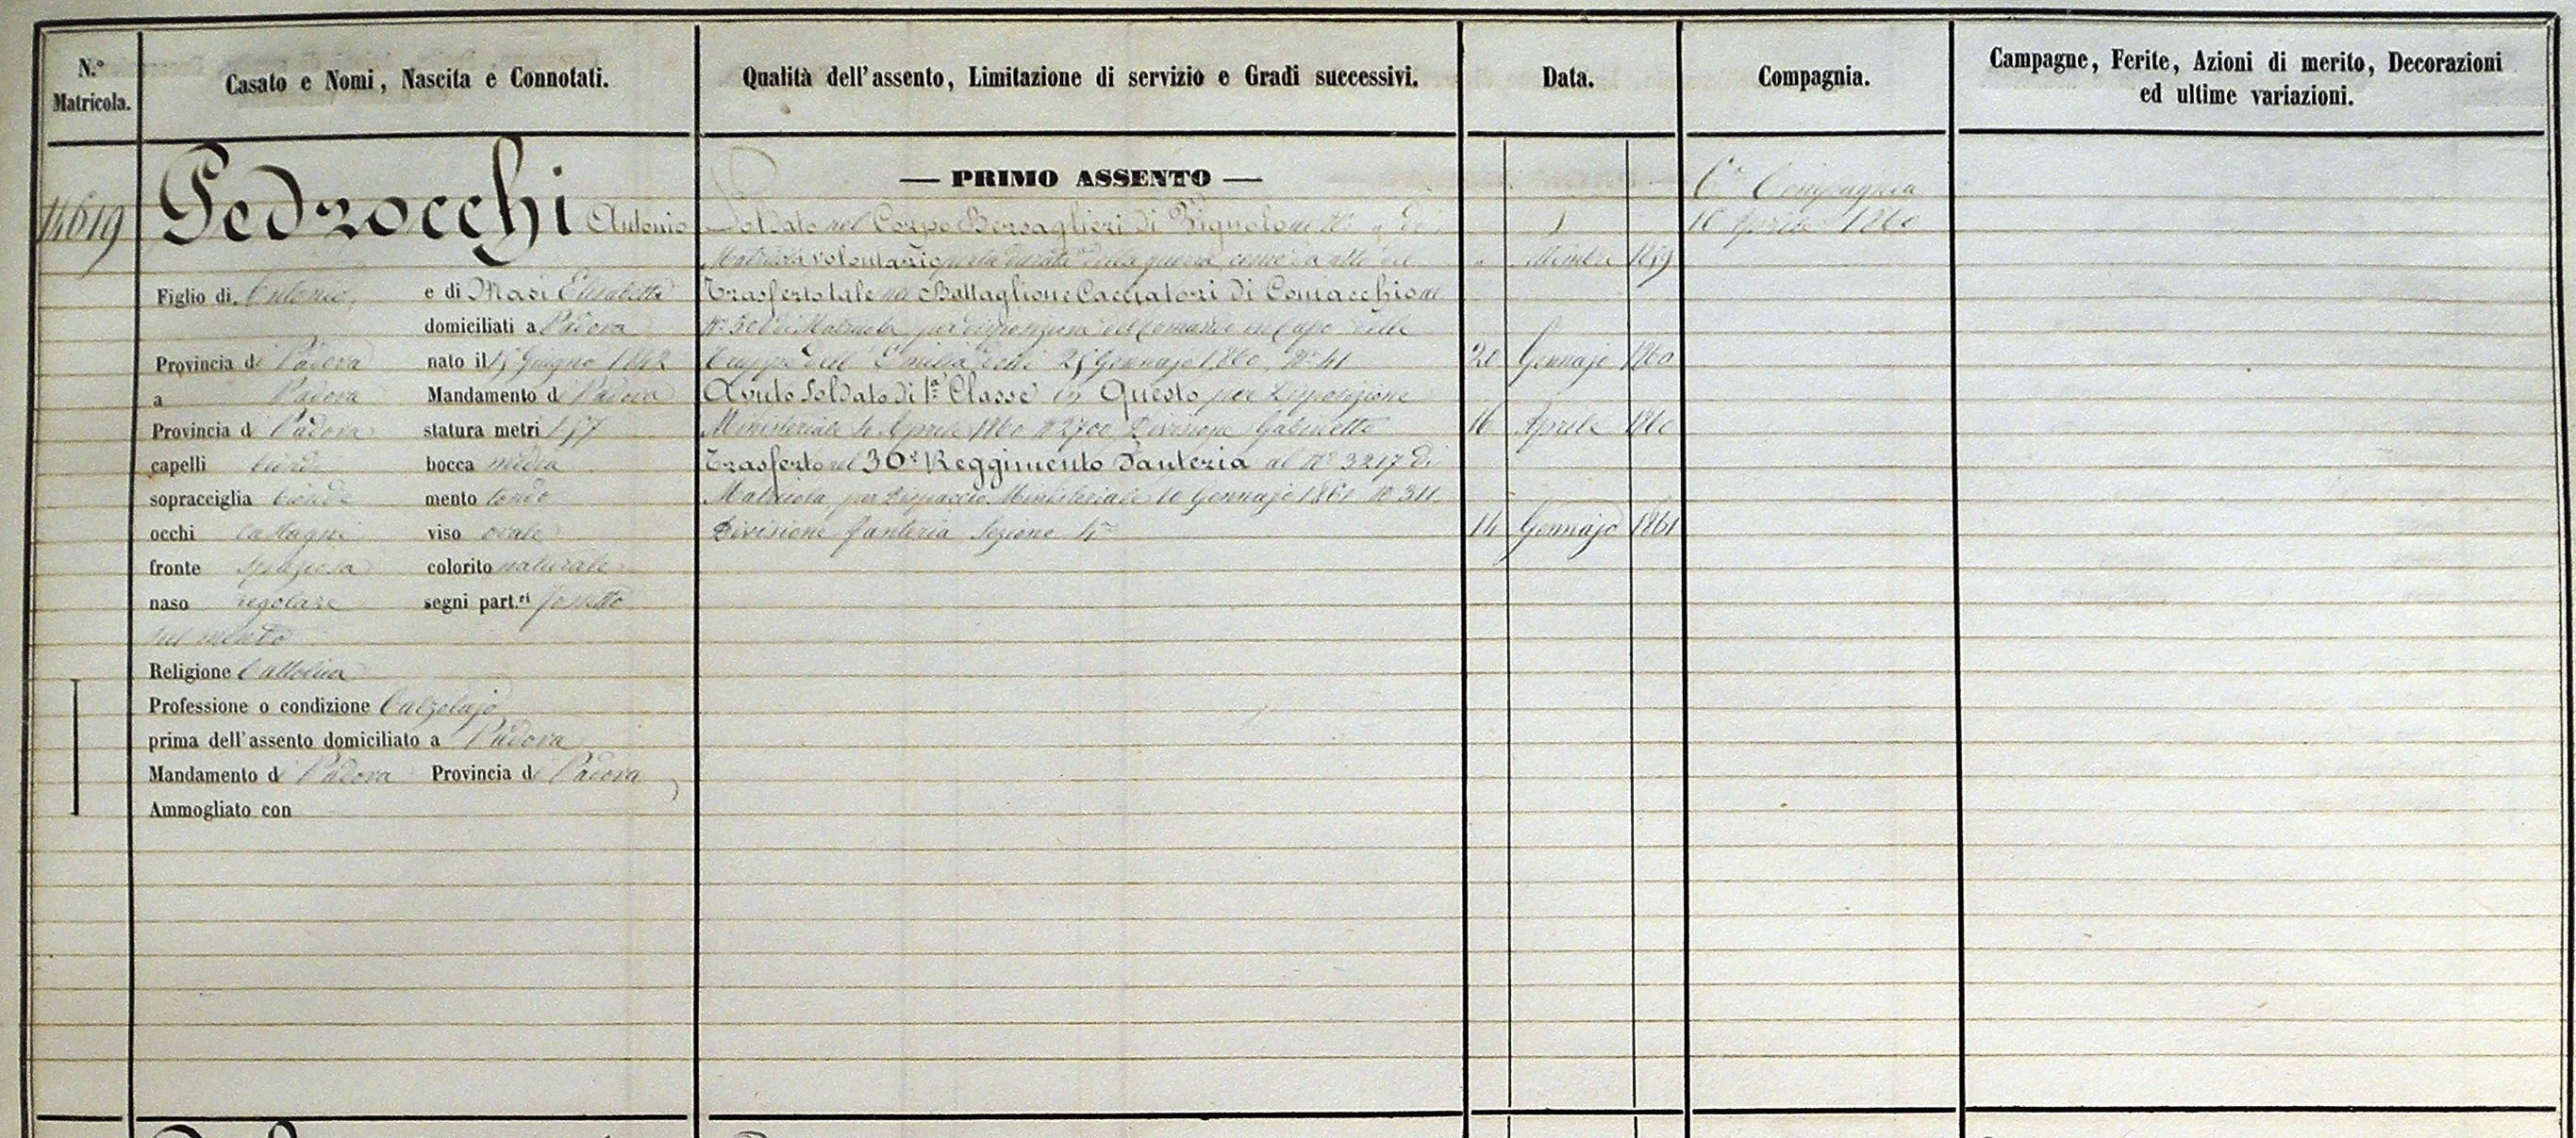 N.° Matricola.
Casato e Nomi, Nascita e Connotati.
Qualità dell'assento, Limitazione di servizio e Gradi successivi.
Data.
Compagnia.
Campagne, Ferite, Azioni di merito, Decorazioni
ed ultime variazioni.
14619
Pedrocchi Antonio
Figlio di Antonio e di Masi Elisabetta
domiciliati a Padova
Provincia di Padova nato il 15 Giugno 1842
a Padova Mandamento di Padova
Provincia di Padova statura metri 1,57
capelli biondi bocca media
sopracciglia bionde mento tondo
occhi castagni viso ovale
fronte spaziosa colorito naturale
naso regolare segni part.ri fossetta
sul mento
Religione Cattolica
Professione o condizione Calzolajo
prima dell'assento domiciliato a Padova
Mandamento di Padova Provincia di Padova
Ammogliato con
— PRIMO ASSENTO —
Soldato nel Corpo Bersaglieri di Pignolo al N° " di
Matricola volontario per la durata della guerra, come da atto del
" 1859
Trasferto tale nel Battaglione Cacciatori di Comacchio al
N° di Matricola per disposizione del Comando in Capo delle
Truppe dell'Emilia delli 25 Gennajo 1860, N° 41
20 Gennajo 1860
Avuto Soldato di 1ª Classe in Questo per Disposizione
Ministeriale 4 Aprile 1860 N° 2700, Divisione Gabinetto
16 Aprile 1860
Trasferto nel 36° Reggimento Fanteria al N° 3217 di
Matricola, per Dispaccio Ministeriale 10 Gennajo 1861 N° 311
Divisione Fanteria Sezione 4ª
14 Gennajo 1861
6ª Compagnia
16 Aprile 1860